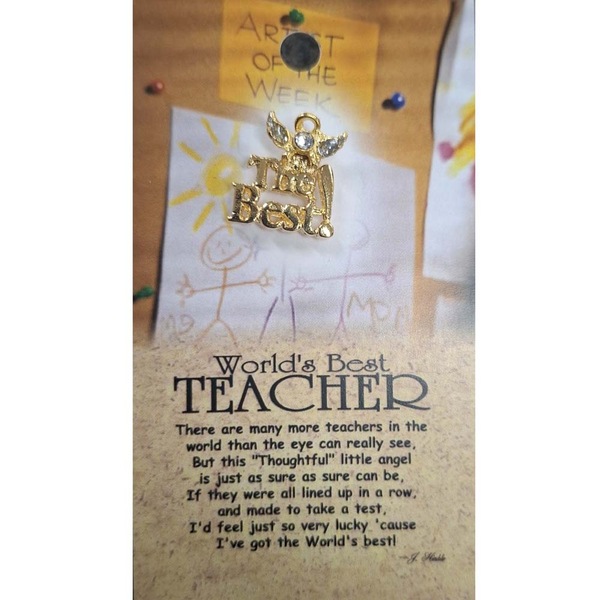 ARTIST
OF THE
WEEK
The
Best!
me
MOM
World's Best
TEACHER
There are many more teachers in the
world than the eye can really see,
But this "Thoughtful" little angel
is just as sure as sure can be,
If they were all lined up in a row,
and made to take a test,
I'd feel just so very lucky 'cause
I've got the World's best!